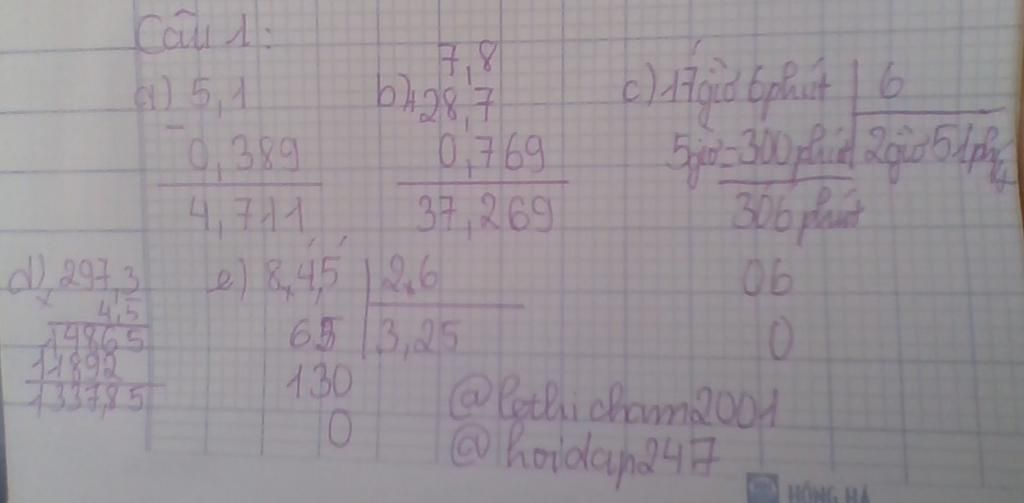 Câu 1:
a) 5,1
-
0,389
4,711
b) 7,8
+ 28,7
0,769
37,269
c) 17 giờ 6 phút | 6
5 giờ = 300 phút | 2 giờ 51 phút
306 phút
06
0
d) 297,3
x
4,5
14865
11892
1337,85
e) 8,4,5 | 2,6
65 | 3,25
130
0
@lethicham2001
@hoidap247
HỒNG HÀ